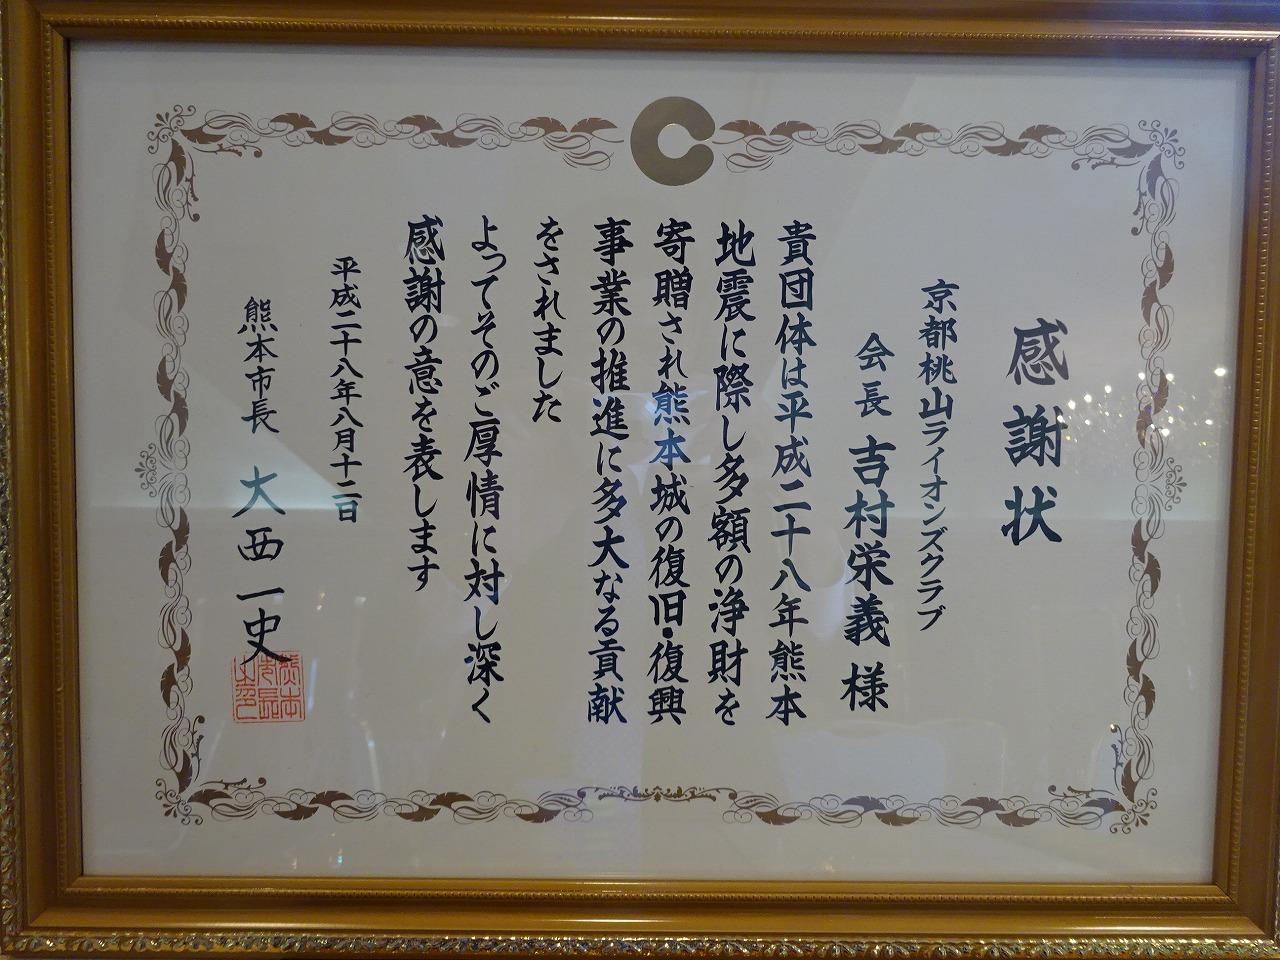 感謝状
京都桃山ライオンズクラブ
会長 吉村栄義 様
貴団体は平成二十八年熊本
地震に際し多額の浄財を
寄贈され熊本城の復旧・復興
事業の推進に多大なる貢献
をされました
よってそのご厚情に対し深く
感謝の意を表します
平成二十八年八月十二日
熊本市長 大西一史
熊本
市長
之印